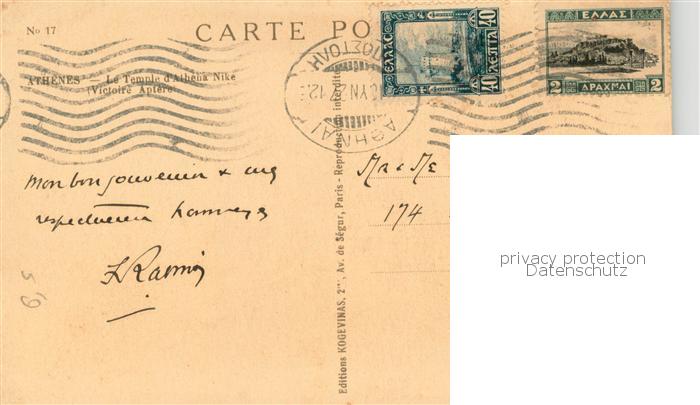 No 17
CARTE PO
ATHÈNES — Le Temple d'Athéna Niké
(Victoire Aptère)
ΕΛΛΑΣ
40 ΛΕΠΤΑ 40
ΕΛΛΑΣ
2 ΔΡΑΧΜΑΙ 2
ΑΘΗΝΑΙ
Mon bon souvenir &
respectueux hommages
Mr & Me
174
Editions KOGEVINAS, 2bis, Av. de Ségur, Paris - Reproduction interdite
privacy protection
Datenschutz